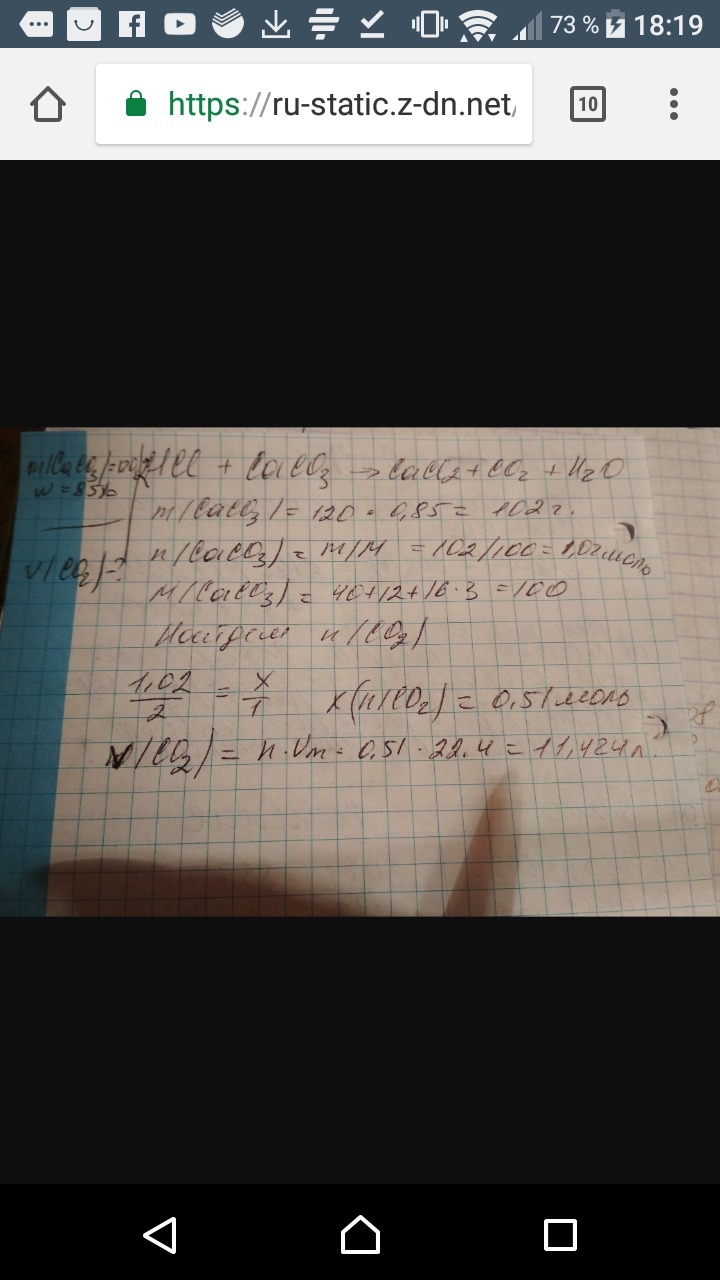 73 % 18:19
https://ru-static.z-dn.net/
10
m(CaCO3)=
w=85%
V(CO2)-?
2HCl + CaCO3 → CaCl2+CO2+H2O
m(CaCO3)= 120 · 0,85= 102 г.
n(CaCO3)= m/M =102/100=1,02моль
M(CaCO3)= 40+12+16·3 =100
Найдем n(CO2)
1,02/2 = x/1 x(n(CO2)= 0,51моль
V(CO2)= n·Vm= 0,51·22.4= 11,424л.